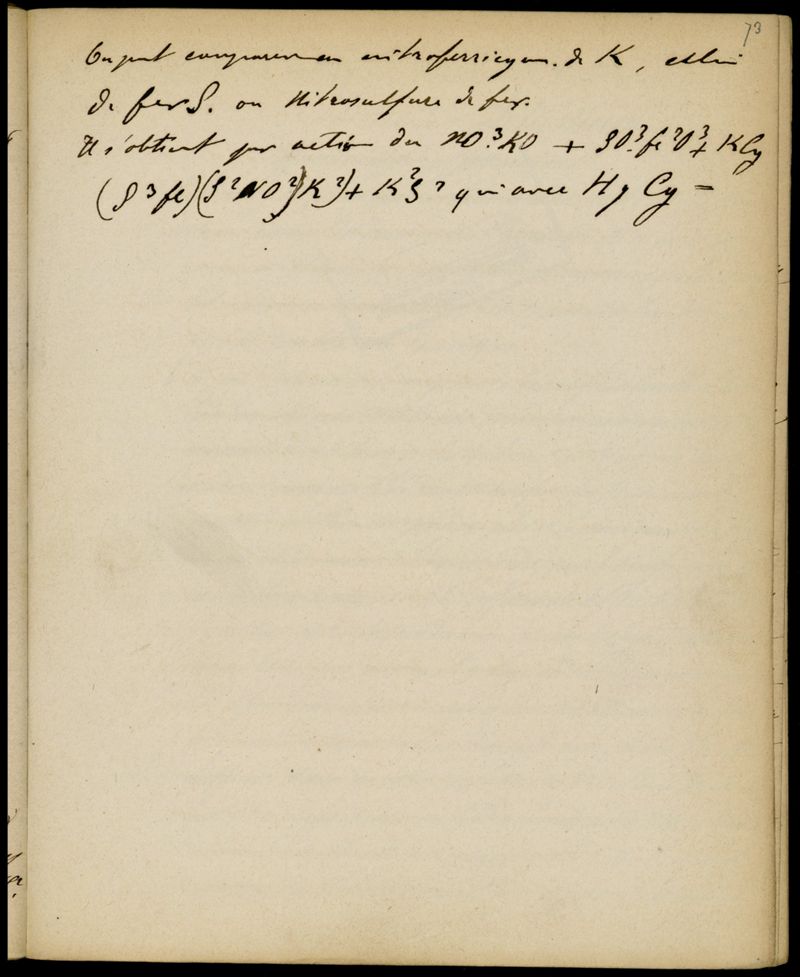 73
On peut comparer au nitroferricyan. de K, celui
de fer S. ou Nitrosulfure de fer.
Il s'obtient par action du NO.³KO + SO.³fe²O³ + KCy
(S³fe)(S²NO²)(K²) + K²S² qui avec HgCy =